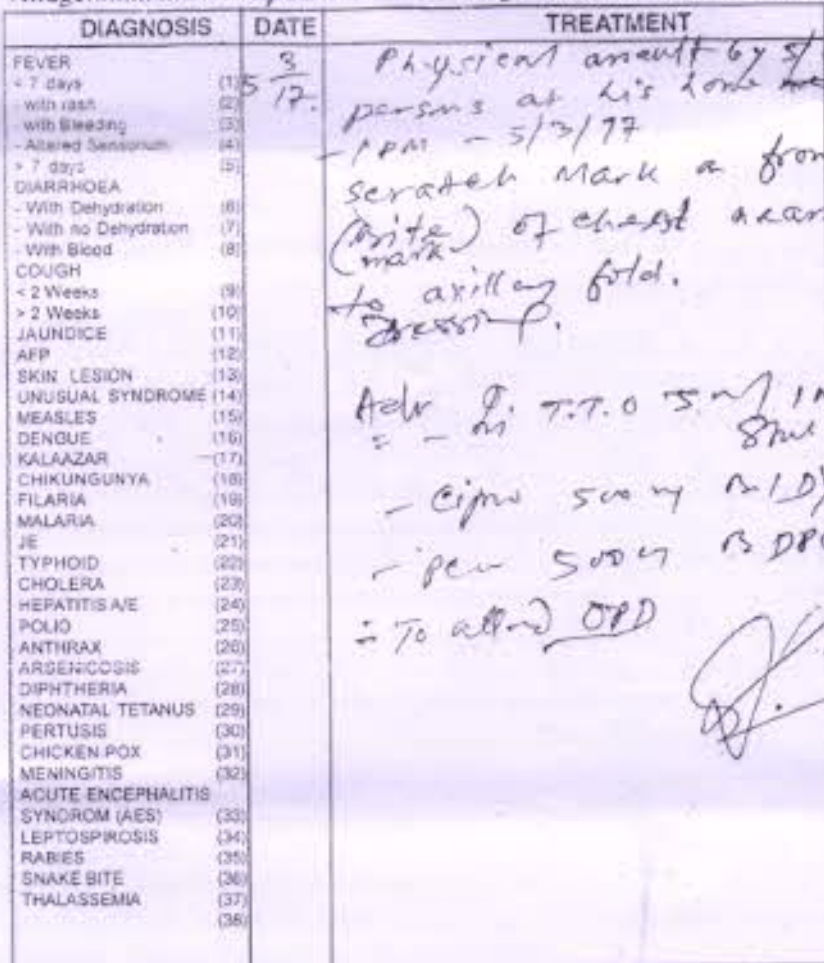 DIAGNOSIS DATE TREATMENT
FEVER
< 7 days (1)
- with rash (2)
- with Bleeding (3)
- Altered Sensorium (4)
> 7 days (5)
DIARRHOEA
- With Dehydration (6)
- With no Dehydration (7)
- With Blood (8)
COUGH
< 2 Weeks (9)
> 2 Weeks (10)
JAUNDICE (11)
AFP (12)
SKIN LESION (13)
UNUSUAL SYNDROME (14)
MEASLES (15)
DENGUE (16)
KALAAZAR (17)
CHIKUNGUNYA (18)
FILARIA (19)
MALARIA (20)
JE (21)
TYPHOID (22)
CHOLERA (23)
HEPATITIS A/E (24)
POLIO (25)
ANTHRAX (26)
ARSENICOSIS (27)
DIPHTHERIA (28)
NEONATAL TETANUS (29)
PERTUSIS (30)
CHICKEN POX (31)
MENINGITIS (32)
ACUTE ENCEPHALITIS
SYNDROM (AES) (33)
LEPTOSPIROSIS (34)
RABIES (35)
SNAKE BITE (36)
THALASSEMIA (37)
(38)
5 3
17.
Physical assault by 5/
persons at his home
- 1 PM - 5/3/17
scratch Mark a fron
(Bite mark) of chest near
to axillary fold.
Dressing.
Adv T.T. 0.5 ml IM
- Cipro 500 mg BID
- 500 BDPC
- To attend OPD